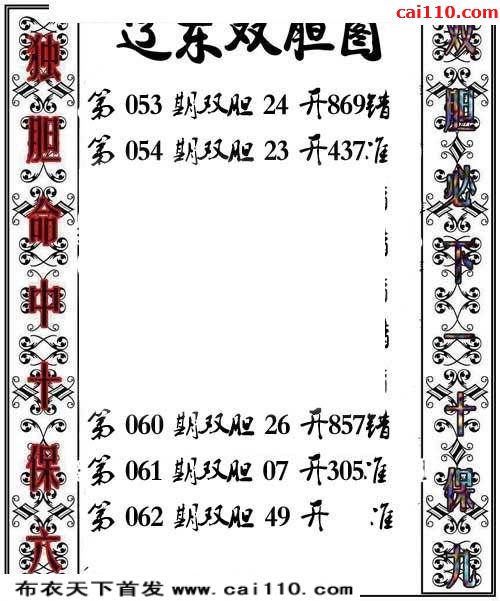 cai110.com
辽东双胆图
独胆命中十保六
双胆必下一十保九
第 053 期双胆 24 开869错
第 054 期双胆 23 开437准
第 060 期双胆 26 开857错
第 061 期双胆 07 开305准
第 062 期双胆 49 开 准
布衣天下首发 www.cai110.com